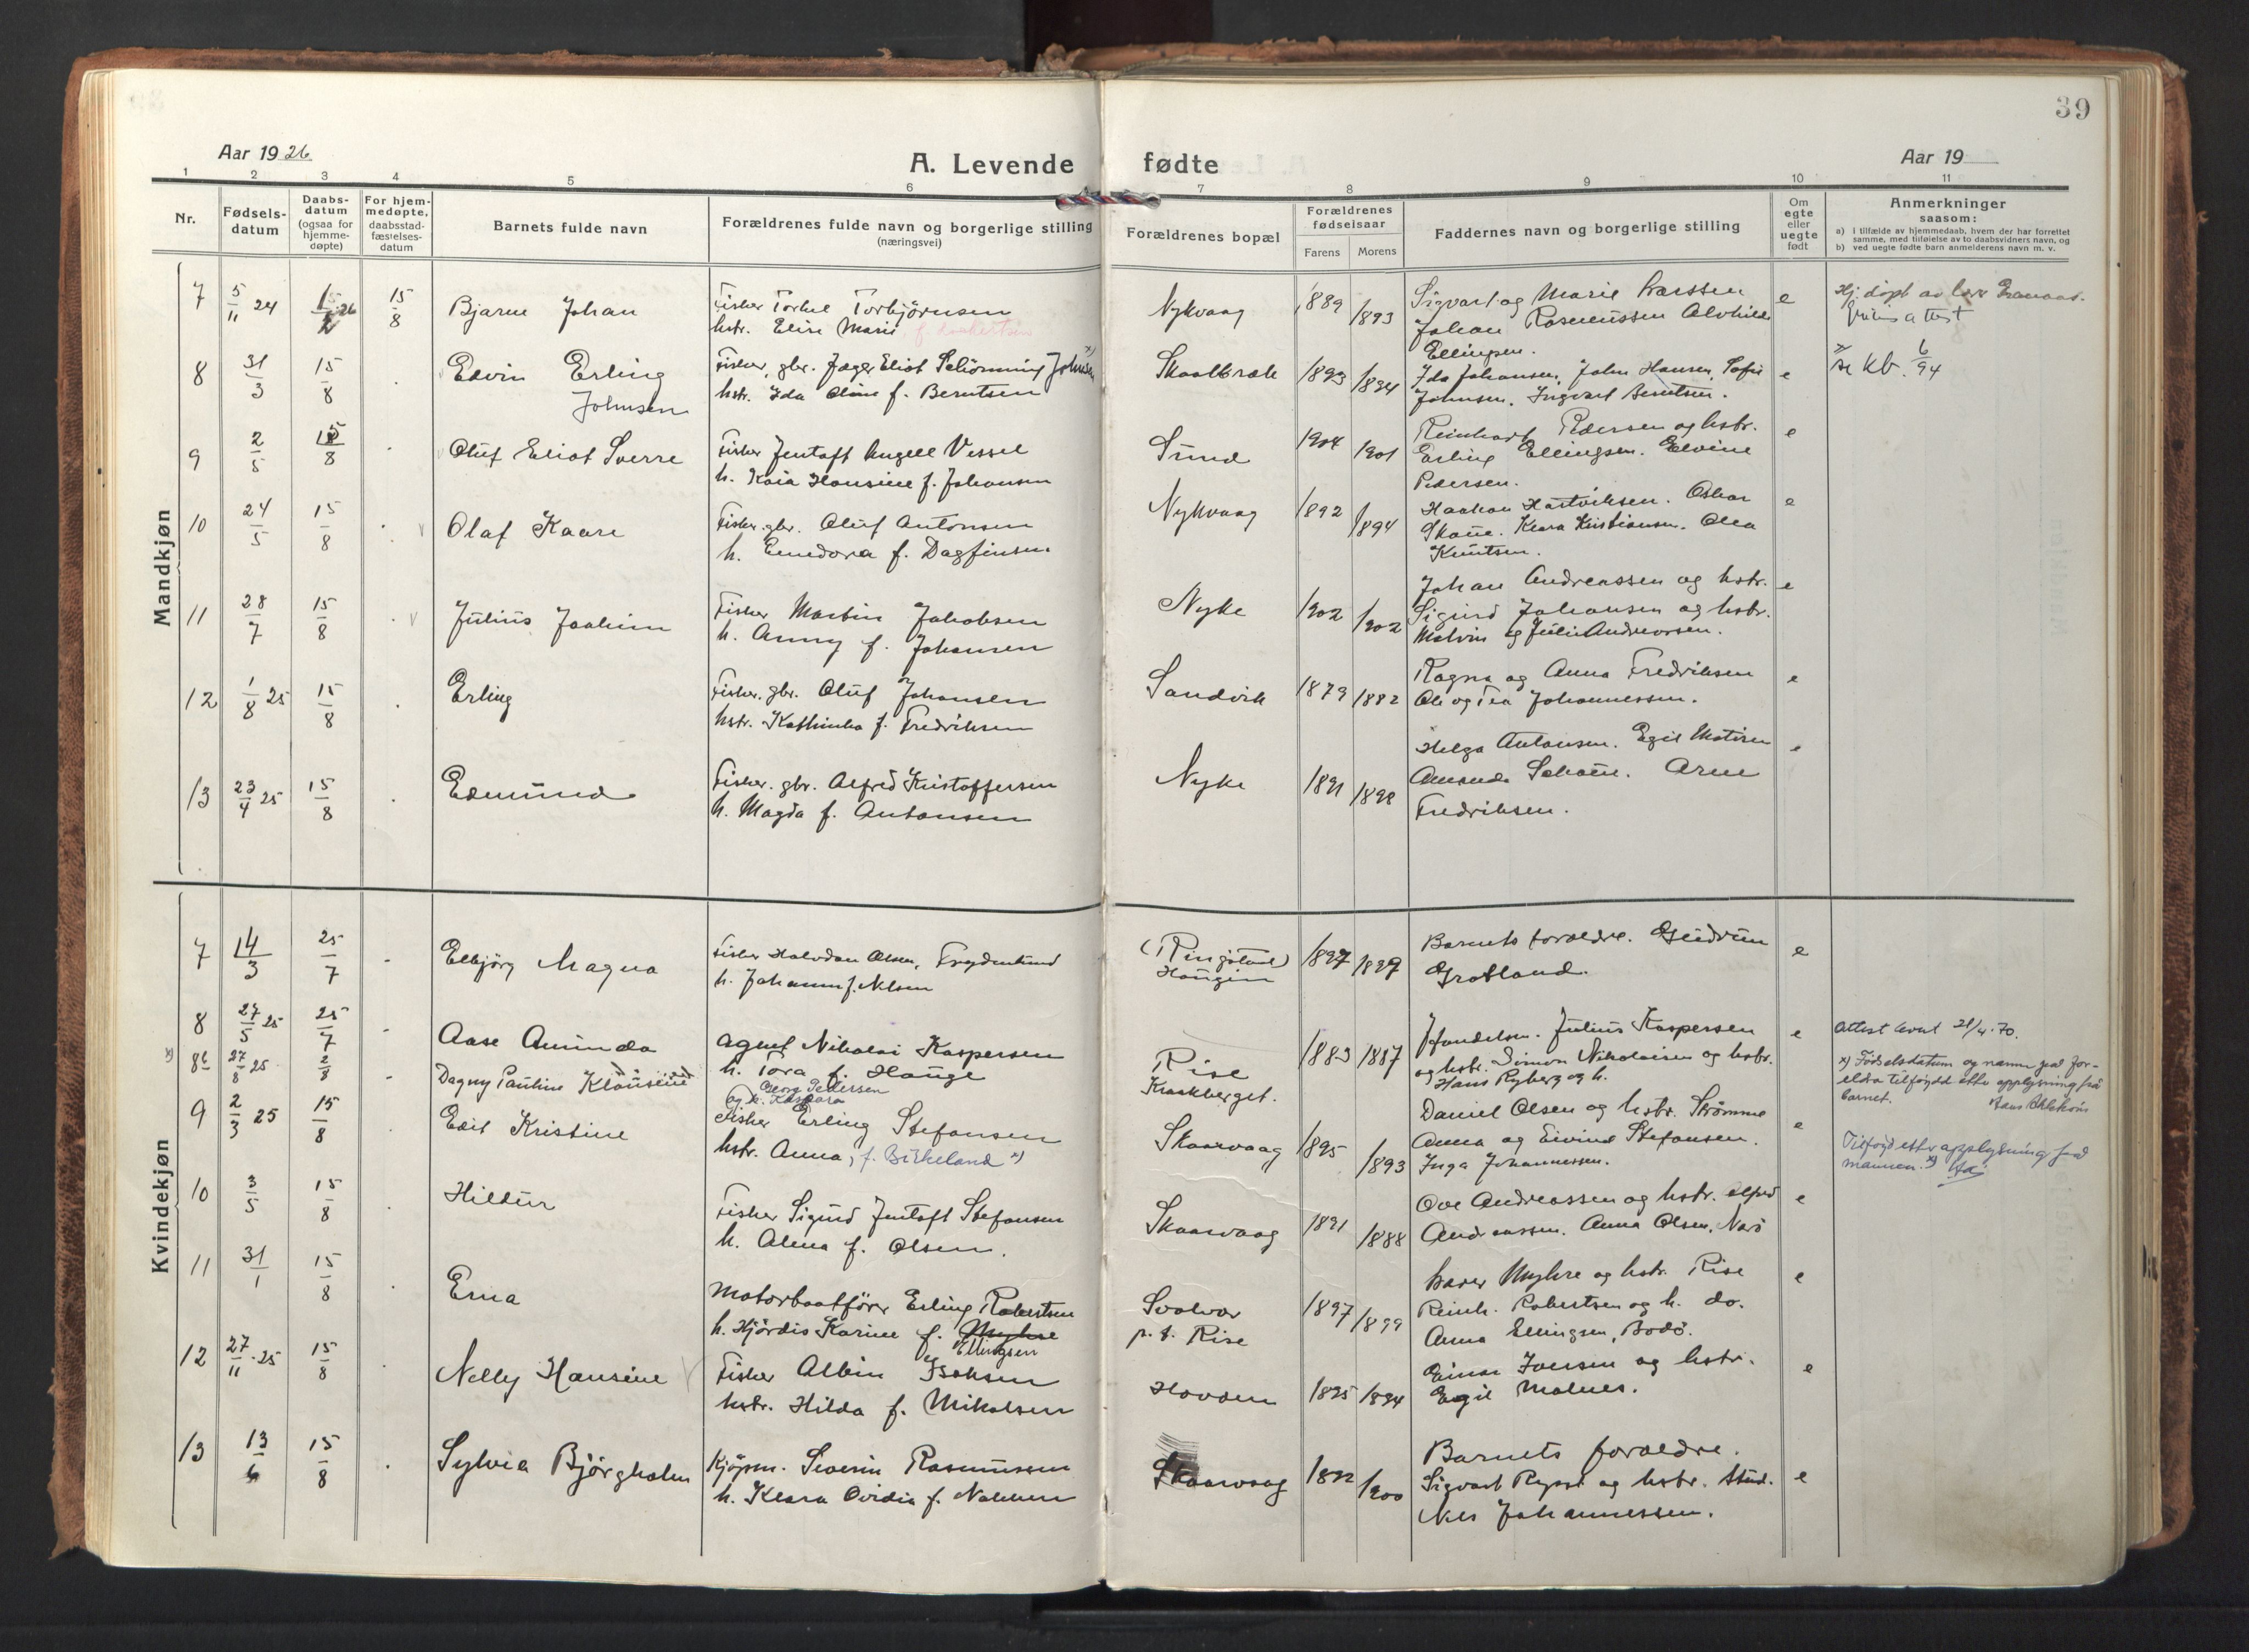 39
Aar 1926
A. Levende fødte
Aar 19
1 2 3 4 5 6 7 8 9 10 11
Nr.
Fødsels-
datum
Daabs-
datum
(ogsaa for
hjemme-
døpte)
For hjem-
medøpte,
daabsstad-
fæstelses-
datum
Barnets fulde navn
Forældrenes fulde navn og borgerlige stilling
(næringsvei)
Forældrenes bopæl
Forældrenes
fødselsaar
Farens Morens
Faddernes navn og borgerlige stilling
Om
egte
eller
uegte
født
Anmerkninger
saasom:
a) i tilfælde av hjemmedaab, hvem der har forrettet
samme, med tilføielse av to daabsvidners navn, og
b) ved uegte fødte barn anmelderens navn m. v.
Mandkjøn
7 5/11 24 15/8 Bjarne Johan
Fisker Torkel Torbjörnsen
hstr. Elise Marie
Nykvaag 1889 1893
Sigvart og Marie Larssen
Johan Rasmussen Alvhilde
Ellingsen.
e
Hj. döpt av
attest
8 31/3 15/8 Edvin Erling
Johnsen
Fisker, gbr. Jæger Eliot Schönning Johnsen x)
hstr. Ida Oline f. Berntsen
Skaalbrak 1893 1894
Ida Johansen, John Hansen, Sofie
Johnsen. Ingvart Berntsen.
e
x) se kb. 6/94
9 2/5 15/8 Oluf Eliot Sverre
Fisker Jentoft Angell Vessel
h. Kaia Hansine f. Johansen
Sund 1904 1901
Reinhart Pedersen og hstr.
Erling Ellingsen. Elvine
Pedersen.
e
10 24/5 15/8 Olaf Kaare
Fisker. gbr. Oluf Antonsen
h. Emedora f. Dagfinsen
Nykvaag 1892 1894
Haakon Hartviksen. Oskar
Skaue. Klara Kristiansen. Olea
Knutsen.
e
11 28/7 15/8 Julius Joakim
Fisker Martin Jakobsen
h. Anny f. Johansen
Nyke 1902 1902
Johan Andreassen og hstr.
Sigurd Johansen og hstr.
Malvin og Julie Andreassen.
e
12 1/8 25 15/8 Erling
Fisker. gbr. Oluf Johansen
hstr. Kathinka f. Fredriksen
Sandvik 1879 1882
Ragna og Anna Fredriksen
Ole og Tea Johannessen.
e
13 23/4 25 15/8 Edmund
Fisker. gbr. Alfred Kristoffersen
h. Magda f. Antonsen
Nyke 1891 1898
Helga Antonsen. Egil Matisen
Amanda Arne
Fredriksen.
e
Kvindekjøn
7 14/3 25/7 Elbjörg Magna
Fisker Halvdan Olsen, Frydenlund
h. Johanna f. Nilsen
(Ringstad)
Haugen
1897 1897
Barnets forældre. Gudrun
Grotland.
e
8 27/5 25 25/7 Aase Aminda
Agnet Nikolai Kaspersen
h. Tora f. Hauge
Rise 1883 1887
Handelsm. Julius Kaspersen
og hstr. Simon Nikolaisen og hstr.
Hans Ryberg og h.
e
Attest levert 21/4.70.
x) 8b 27/8 25 2/8 Dagny Pauline Klausine
Georg Pedersen
og h. Kaspara
Kraakberget.
x) Fødselsdatum og namn paa for-
eldra tilføydd etter opplysning frå
barnet.
9 2/3 25 15/8 Edit Kristine
Fisker Erling Stefansen
hstr. Anna, f. Birkeland x)
Skaarvaag 1895 1893
Daniel Olsen og hstr. Strömme
Anna og Eivind Stefansen.
Inga Johannessen.
e
Tilføyd etter opplysning frå
mannen. x)
10 3/5 15/8 Hildur
Fisker Sigurd Jentoft Stefansen
h. Alma f. Olsen.
Skaarvaag 1891 1888
Ove Andreassen og hstr. Alfred
Andreassen. Anna Olsen,
e
11 31/1 15/8 Erna
Motorbaatförer Erling Robertsen
h. Hjördis Karine f. Myhre
Ellingsen
Svolvær
p.t. Rise
1897 1899
Myhre og hstr. Rise
Reinh. Robertsen og h. do.
Anna Ellingsen, Bodö.
e
12 27/11 25 15/8 Nelly Hansine
Fisker Albin Isaksen
hstr. Hilda f. Mikalsen
Hovden 1895 1894
Einar Iversen og hstr.
Egil Malnes.
e
13 13/6 15/8 Sylvia Bjørgholm
Kjöpm. Severin Rasmussen
h. Klara Ovidia f. Nakken
Skaarvaag 1892 1900
Barnets forældre.
Sigvart Ryssi og hstr. Stud.
Nils Johannessen.
e